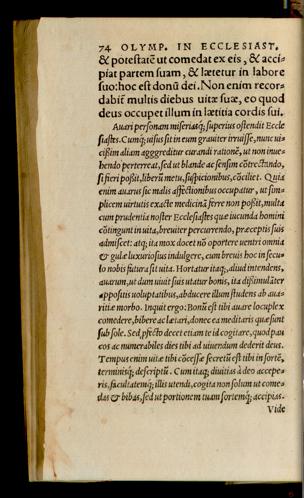 74 OLYMP. IN ECCLESIAST.
& potestatē ut comedat ex eis, & acci-
piat partem suam, & lætetur in labore
suo: hoc est donū dei. Non enim recor-
dabiť multis diebus uitæ suæ, eo quod
deus occupet illum in lætitia cordis sui.
Auari personam miseriasq; superius ostendit Eccle
siastes. Cumq; uisus sit in eum grauiter irruisse, nunc ui-
cissim aliam aggreditur curandi rationē, ut non inue-
hendo perterreat, sed ut blande ac sensim cōtrectando,
si fieri possit, liberū metu, suspicionibus, cōciliet. Quia
enim auarus sic malis affectionibus occupatur, ut sim-
plicem uirtutis exacte medicinā ferre non possit, multa
cum prudentia noster Ecclesiastes quæ iucunda homini
cōtingunt in uita, breuiter percurrendo, præceptis suis
admiscet: atq; ita mox docet nō oportere uentri omnia
& gulæ luxuriosius indulgere, cum breuis hoc in secu-
lo nobis futura sit uita. Hortatur itaq;, aliud intendens,
auarum, ut dum uiuit suis utatur bonis, ita dissimulāter
appositis uoluptatibus, abducere illum studens ab aua-
ritiæ morbo. Inquit ergo: Bonū est tibi auare locuplex
comedere, bibere ac lætari, donec ea meditaris quæ sunt
sub sole. Sed, pfecto decet etiam te id cogitare, quod pau
cos ac numerabiles dies tibi ad uiuendum dederit deus.
Tempus enim uitæ tibi cōcessæ secretū est tibi in sortē,
terminisq; descriptū. Cum itaq; diuitias à deo accepe-
ris, facultatemq; illis utendi, cogita non solum ut come-
das & bibas, sed ut portionem tuam sortemq; accipias.
Vide